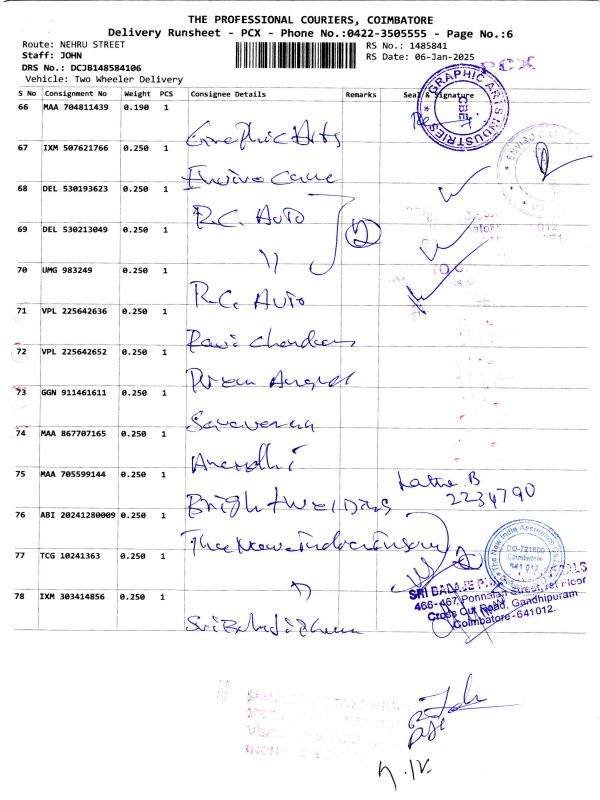 THE PROFESSIONAL COURIERS, COIMBATORE
Delivery Runsheet - PCX - Phone No.:0422-3505555 - Page No.:6
Route: NEHRU STREET
RS No.: 1485841
Staff: JOHN
RS Date: 06-Jan-2025
PCX
DRS No.: DCJB148584106
Vehicle: Two Wheeler Delivery
S No Consignment No Weight PCS Consignee Details Remarks Seal & Signature
66 MAA 704811439 0.190 1 Graphic Arts
GRAPHIC ARTS INDUSTRIES
CBE
67 IXM 507621766 0.250 1
68 DEL 530193623 0.250 1 R.C. Auto
2
69 DEL 530213049 0.250 1 "
70 UMG 983249 0.250 1 R.C. Auto
71 VPL 225642636 0.250 1 Ravi Chandran
72 VPL 225642652 0.250 1
73 GGN 911461611 0.250 1 Saravanan
74 MAA 867707165 0.250 1
75 MAA 705599144 0.250 1 Bright Weldings
Latha B
2234790
76 ABI 20241280009 0.250 1 The New India Insurance
The New India Assurance
DO-721600
Coimbatore
641 012
77 TCG 10241363 0.250 1 "
78 IXM 303414856 0.250 1 Sri Balaji Pharma
SRI BALAJE
466-467, Ponnaian Street, Ist Floor
Cross Cut Road, Gandhipuram
Coimbatore-641012.